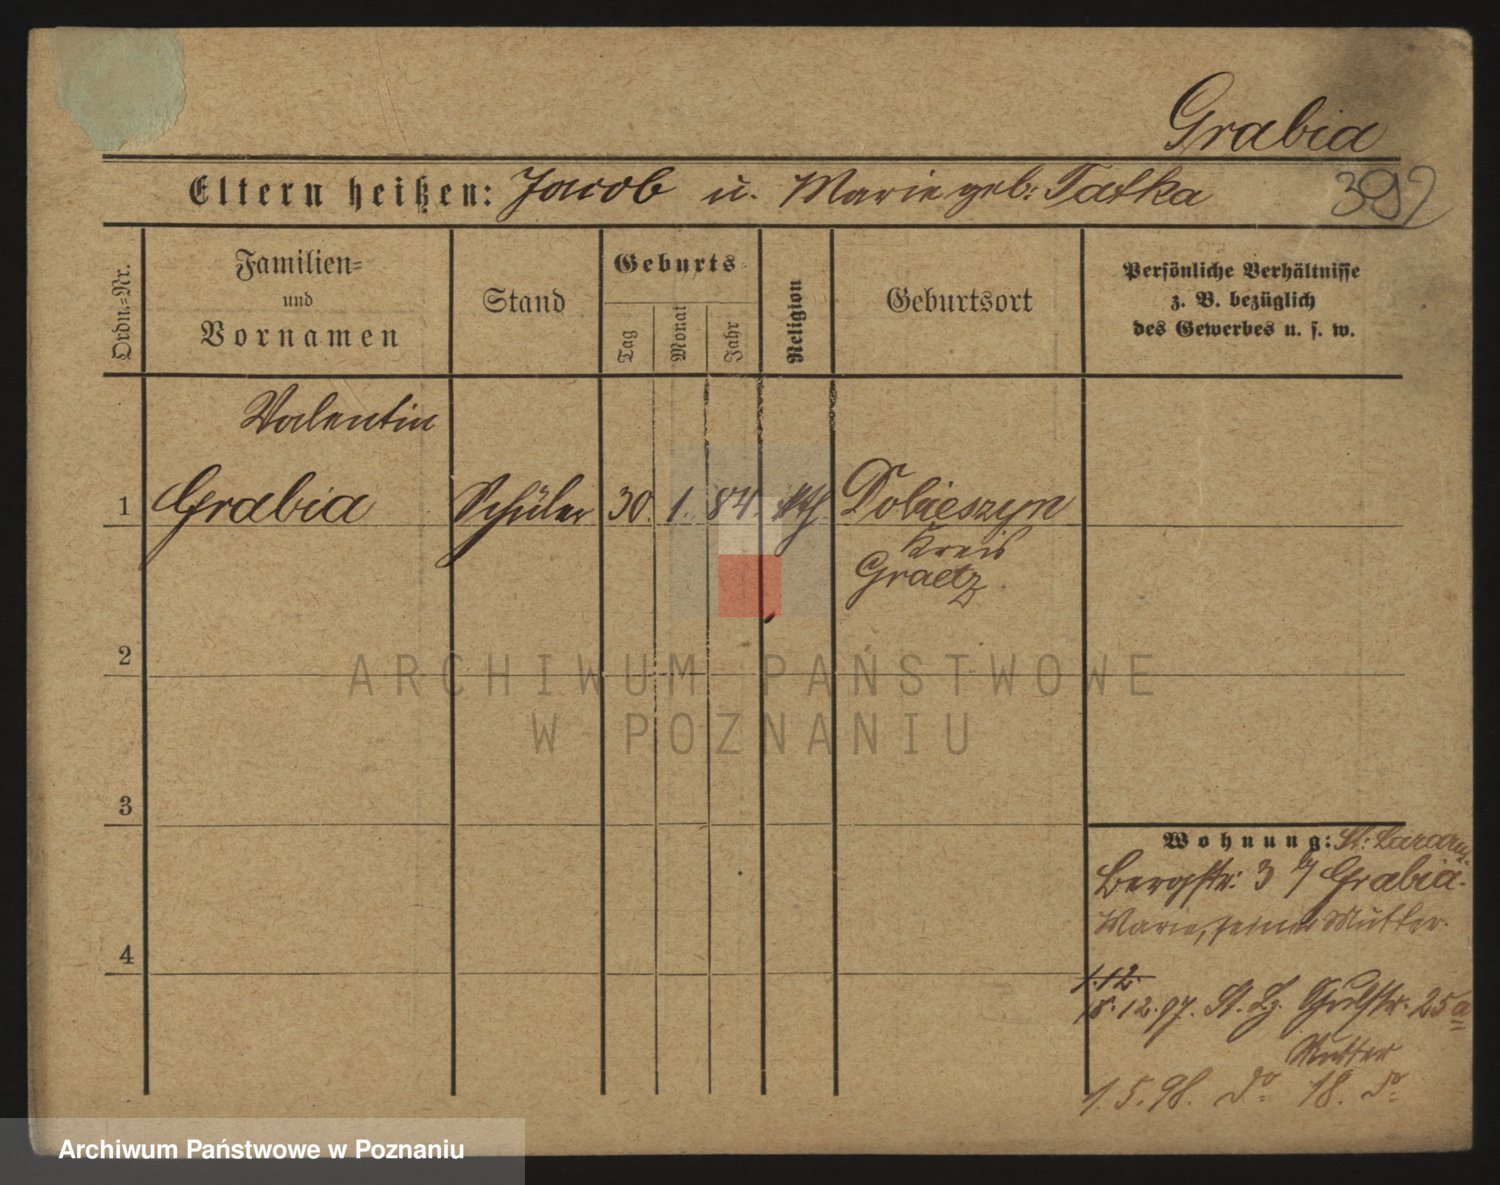 Grabia
Eltern heißen: Jacob u. Marie geb: Tatka
392
Ordn.-Nr.
Familien-
und
Vornamen
Stand
Geburts-
Tag
Monat
Jahr
Religion
Geburtsort
Persönliche Verhältnisse
z. B. bezüglich
des Gewerbes u. s. w.
Valentin
1 Grabia Schüler 30. 1. 84. kth Dobieszyn
Kreis
Graetz
2
ARCHIWUM PAŃSTWOWE
W POZNANIU
3
Wohnung: St: Lazarus
Bergstr: 3 Grabia.
Marie, seine Mutter.
4
1.12.
18.12.97. St. Lz. 25a
Mutter
1.5.98. do 18. do
Archiwum Państwowe w Poznaniu